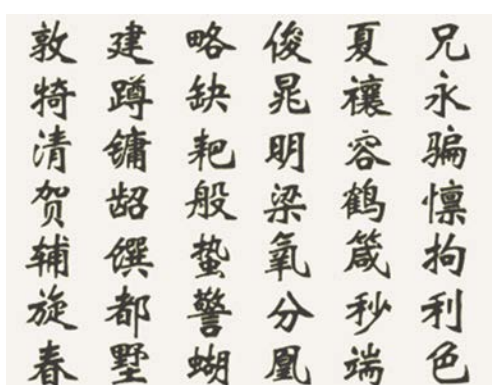 敦建略俊夏兄
犄蹲缺晁禳永
清镛耙明容骗
贺龆般梁鹤懔
辅馔蛰氧箴拘
旋都警分秒利
春墅蝴凰端色